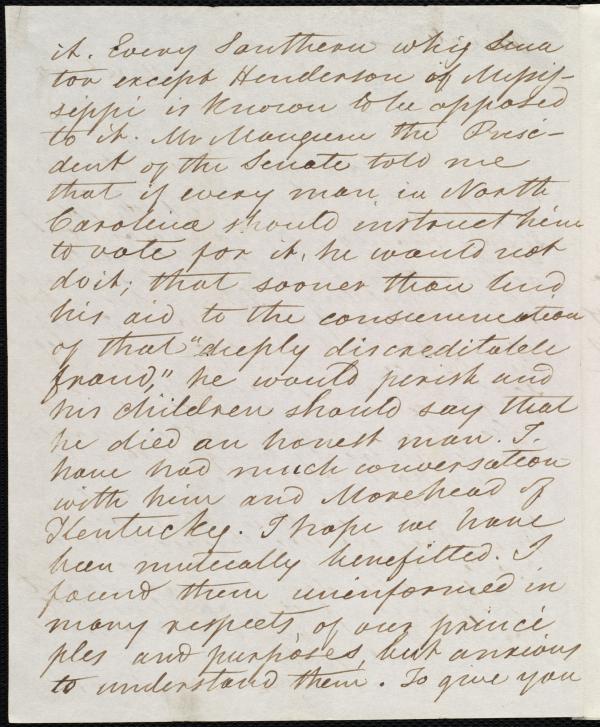 it. Every Southern whig Sena
tor except Henderson of Missis-
sippi is known to be opposed
to it. Mr Mangum the Presi-
dent of the Senate told me
that if every man in North
Carolina should instruct him
to vote for it, he would not
do it; that sooner than lend
his aid to the consummation
of that "deeply discreditable
fraud," he would perish and
his children should say that
he died an honest man. I
have had much conversation
with him and Morehead of
Kentucky. I hope we have
been mutually benefitted. I
found them uninformed in
many respects of our princi
ples and purposes, but anxious
to understand them. To give you